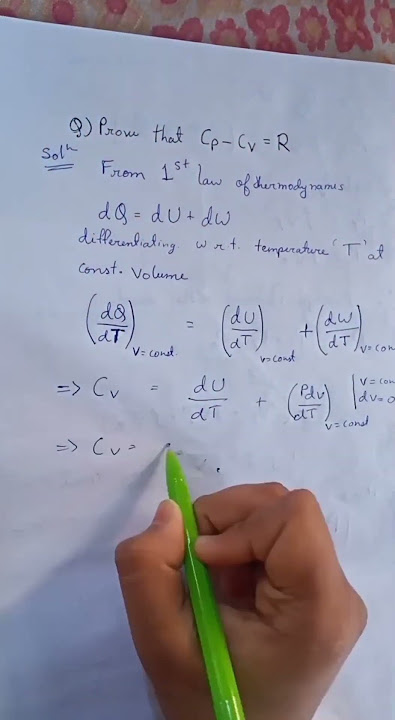 Q) Prove that Cp - Cv = R
Solⁿ
From 1st law of thermodynames
dQ = dU + dW
differentiating w r t. temperature 'T' at
const. volume
(dQ/dT)v=const. = (dU/dT)v=const + (dW/dT)v=con
=> Cv = dU/dT + (Pdv/dT)v=const | v=con dv=0
=> Cv =